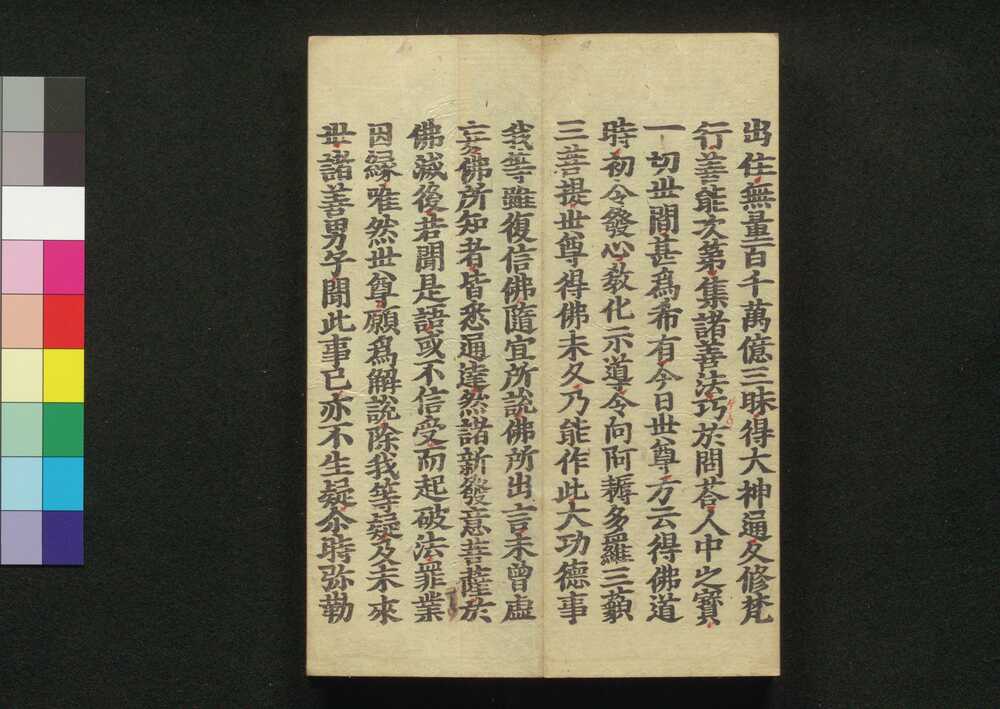 出住無量百千萬億三昧得大神通久修梵
行善能次第集諸善法巧於問荅人中之寶
一切世間甚爲希有今日世尊方云得佛道
時初令發心教化示導令向阿耨多羅三藐
三菩提世尊得佛未久乃能作此大功德事
我等雖復信佛隨宜所說佛所出言未曾虛
妄佛所知者皆悉通達然諸新發意菩薩於
佛滅後若聞是語或不信受而起破法罪業
因緣唯然世尊願爲解說除我等疑及未來
世諸善男子聞此事已亦不生疑尒時弥勒